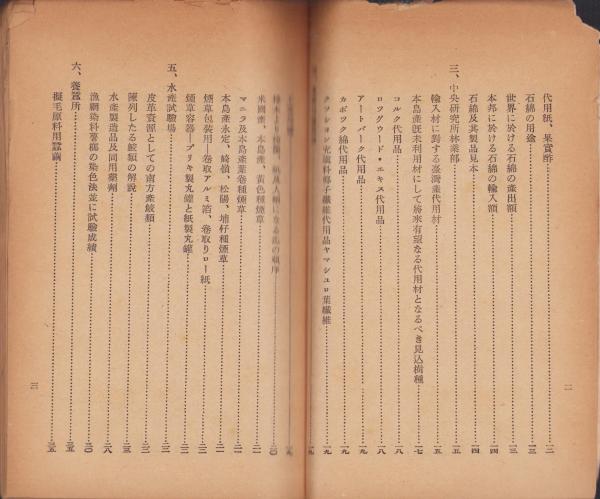 代用紙、果實酢…………一二
石綿の用途…………一三
世界に於ける石綿の產出額…………一三
本邦に於ける石綿の輸入額…………一四
石綿及其製品見本…………一四
三、中央研究所林業部…………一五
輸入材に對する臺灣產代用材…………一五
本島產既未利用材にして將來有望なる代用材となるべき見込樹種…………一七
コルク代用品…………一八
ロツグウード・エキス代用品…………一八
アートバーク代用品…………一九
カポツク綿代用品…………一九
クツシヨン充塡料椰子纖維代用品ヤマシユロ葉纖維…………一九
二
米國產、本島產、黃色種煙草…………
マニラ及本島產葉卷種煙草…………二一
本島產永定、崎嶺、松陽、埔仔種煙草…………二一
煙草包裝用―卷取アルミ箔、卷取りロー紙…………二二
煙草容器―ブリキ製丸罐と紙製丸罐…………二二
五、水產試驗場…………二三
皮革資源としての南方產鮫類…………二三
陳列したる鮫類の解說…………二三
水產製造品及同用藥劑…………二八
漁網染料薯榔の染色法並に試驗成績…………三〇
六、養蠶所…………三五
擬毛原料用蠶繭…………三五
三